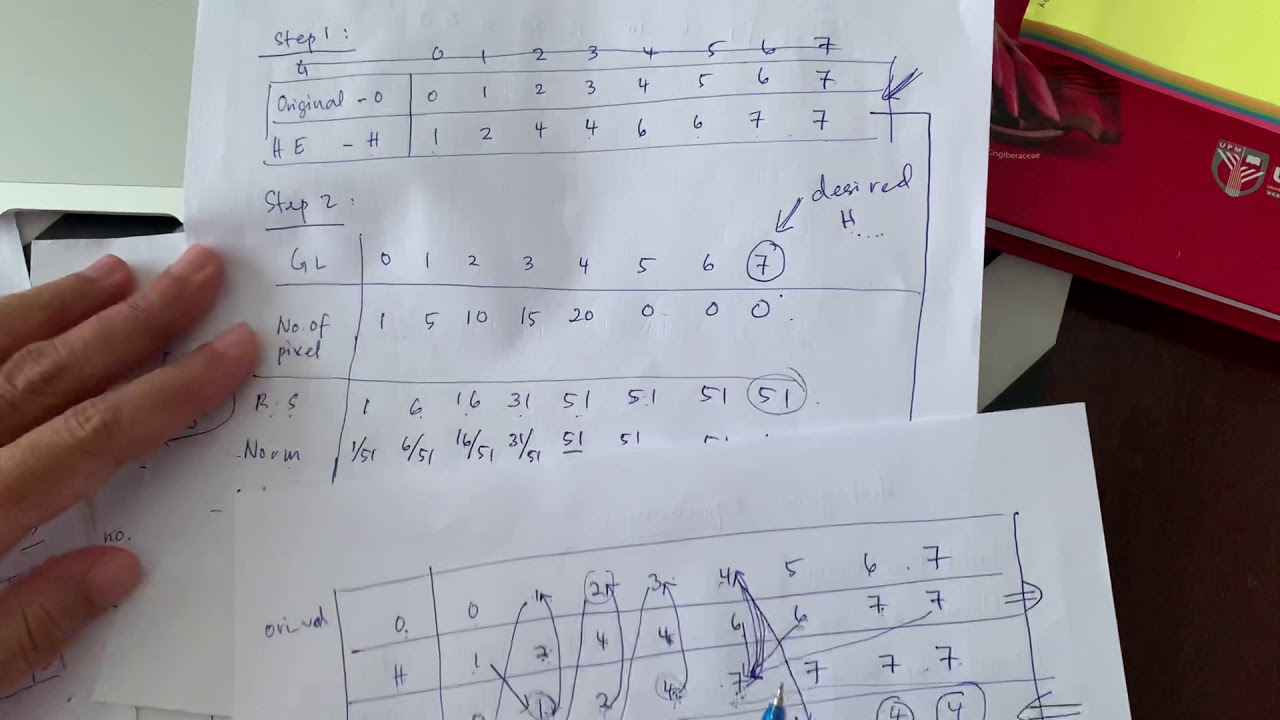 Step 1:
G 0 1 2 3 4 5 6 7
Original - O 0 1 2 3 4 5 6 7
HE - H 1 2 4 4 6 6 7 7
Step 2:
desired
H....
GL 0 1 2 3 4 5 6 7
No. of pixel 1 5 10 15 20 0 0 0
R.S 1 6 16 31 51 51 51 51
Norm 1/51 6/51 16/51 31/51 51 51
no.
O 0 1 2 3 4 5 6 7
H 1 2 4 4 6 6 7 7
0 1 2 4 7 7 7 7
4 4
ngiberaceae
UPM
U